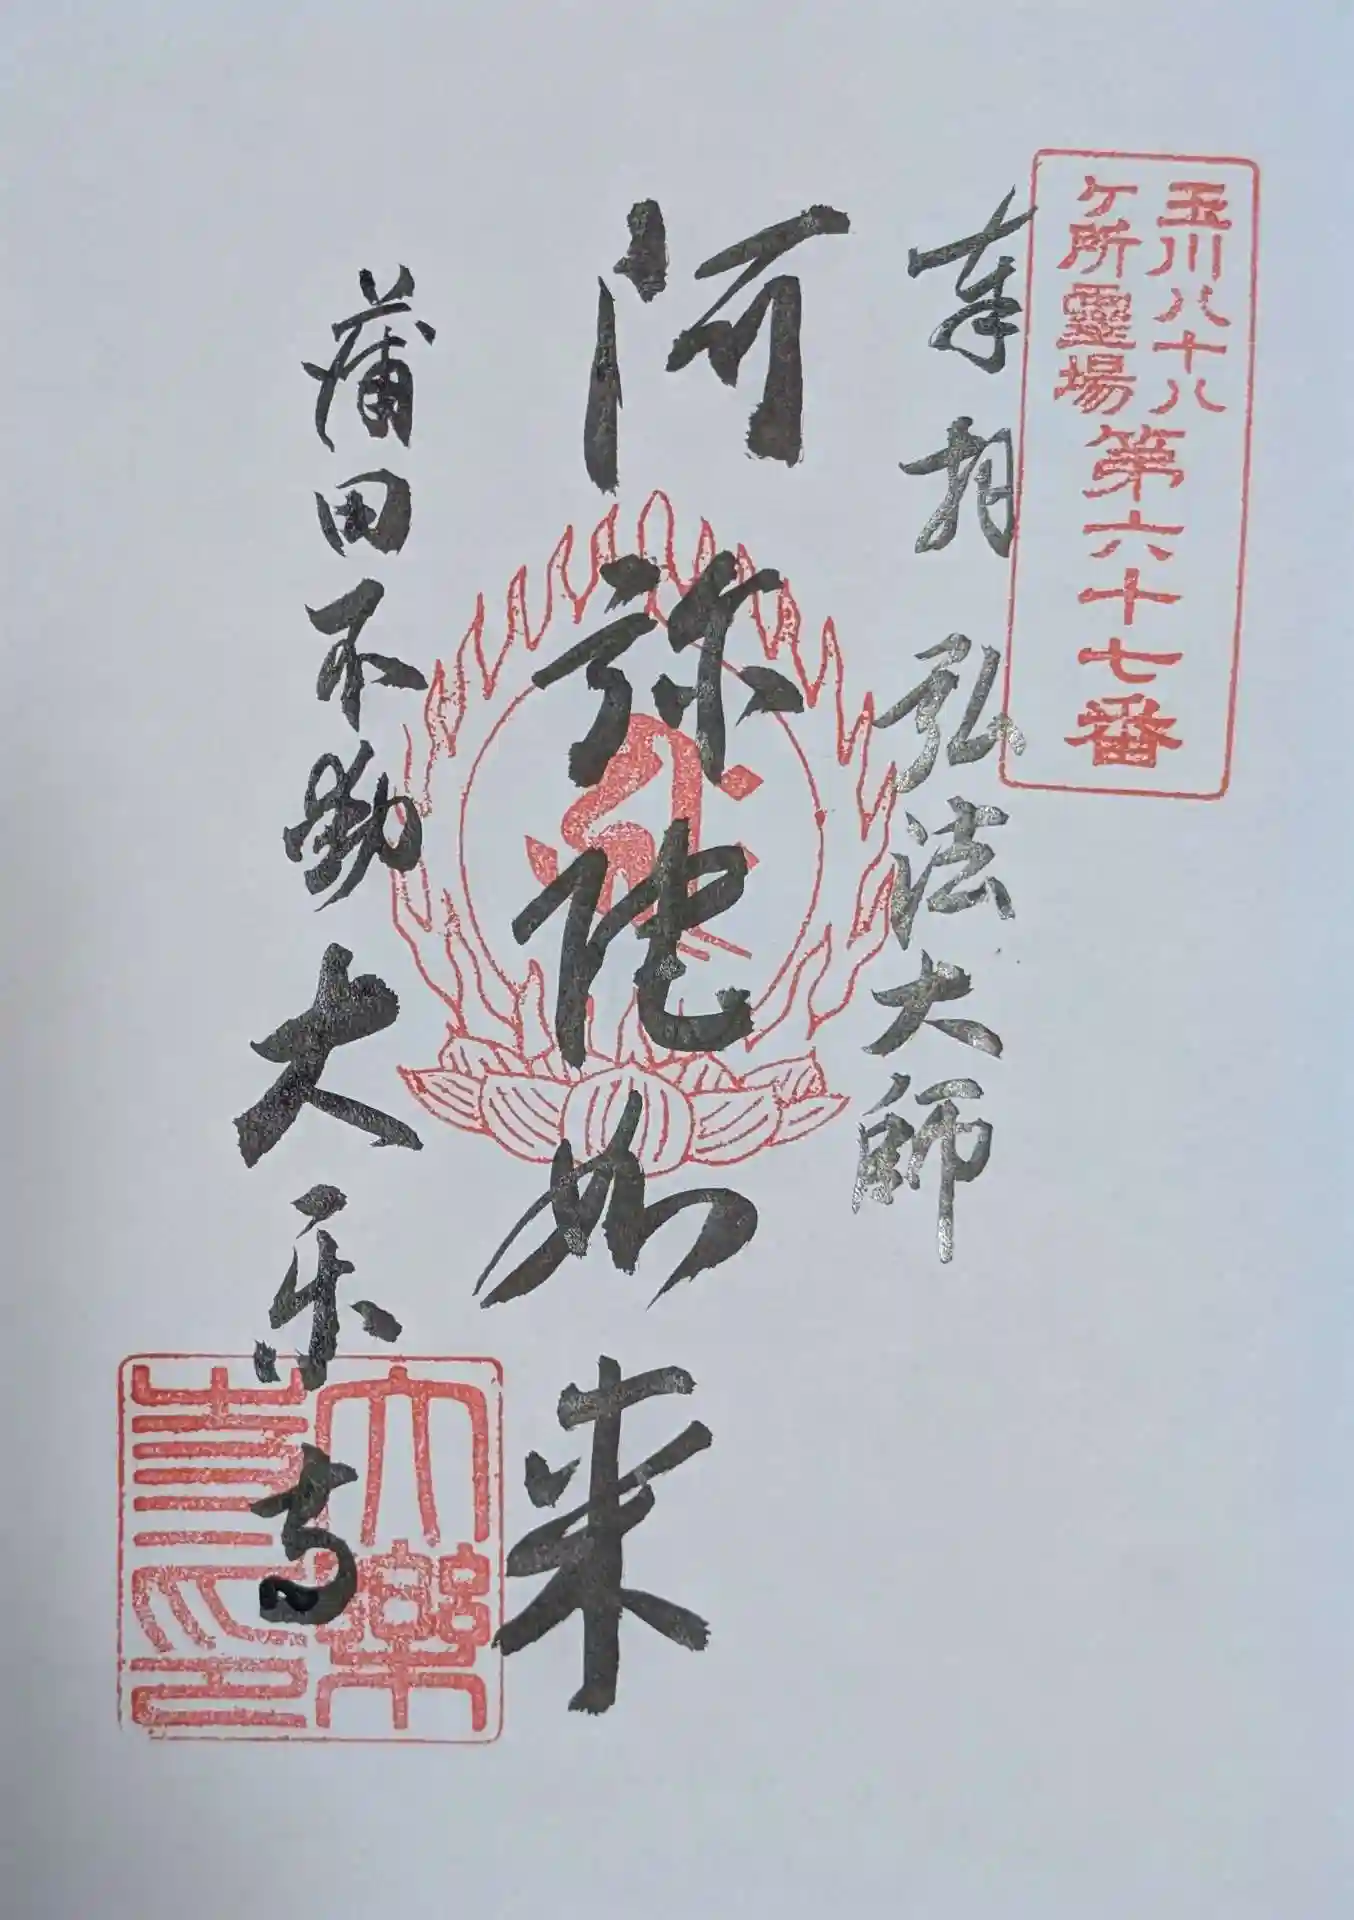 玉川八十八
ヶ所霊場
第六十七番
奉拝 弘法大師
阿弥陀如来
蒲田不動大乐寺
大樂
寺印